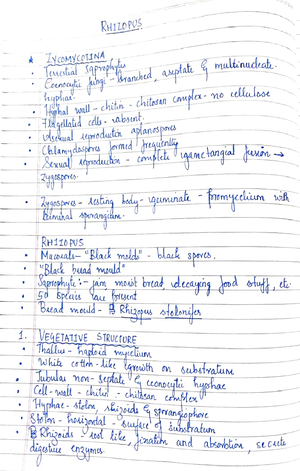 RHIZOPUS
* ZYCOMYCOTINA
• Terrestial saprophytes
• Coenocytic fungi - branched, aseptate & multinucleate hyphae.
• Hyphal wall - chitin - chitosan complex - no cellulose
• Flagellated cells - absent.
• Asexual reproduction aplanospores
• Chlamydospores formed frequently
• Sexual reproduction - complete gametangial fusion →
zygospores.
• Zygospores - resting body - germinate - promycelium with
terminal sporangium.
RHIZOPUS
• Mucorales - "Black molds" - black spores.
• "Black bread mould"
• Saprophyte :- jam, moist bread, decaying food stuff, etc.
• 50 species are present
• Bread mould - Rhizopus stolonifer
1. VEGETATIVE STRUCTURE
• Thallus - haploid mycelium
• White cotton-like growth on substratum
• Tubular non-septate & coenocytic hyphae
• Cell-wall - chitin - chitosan complex
• Hyphae - stolon, rhizoids & sporangiophore
• Stolon - horizontal - surface of substratum
• Rhizoids - root like, fixation and absorption, secrete
digestive enzymes.